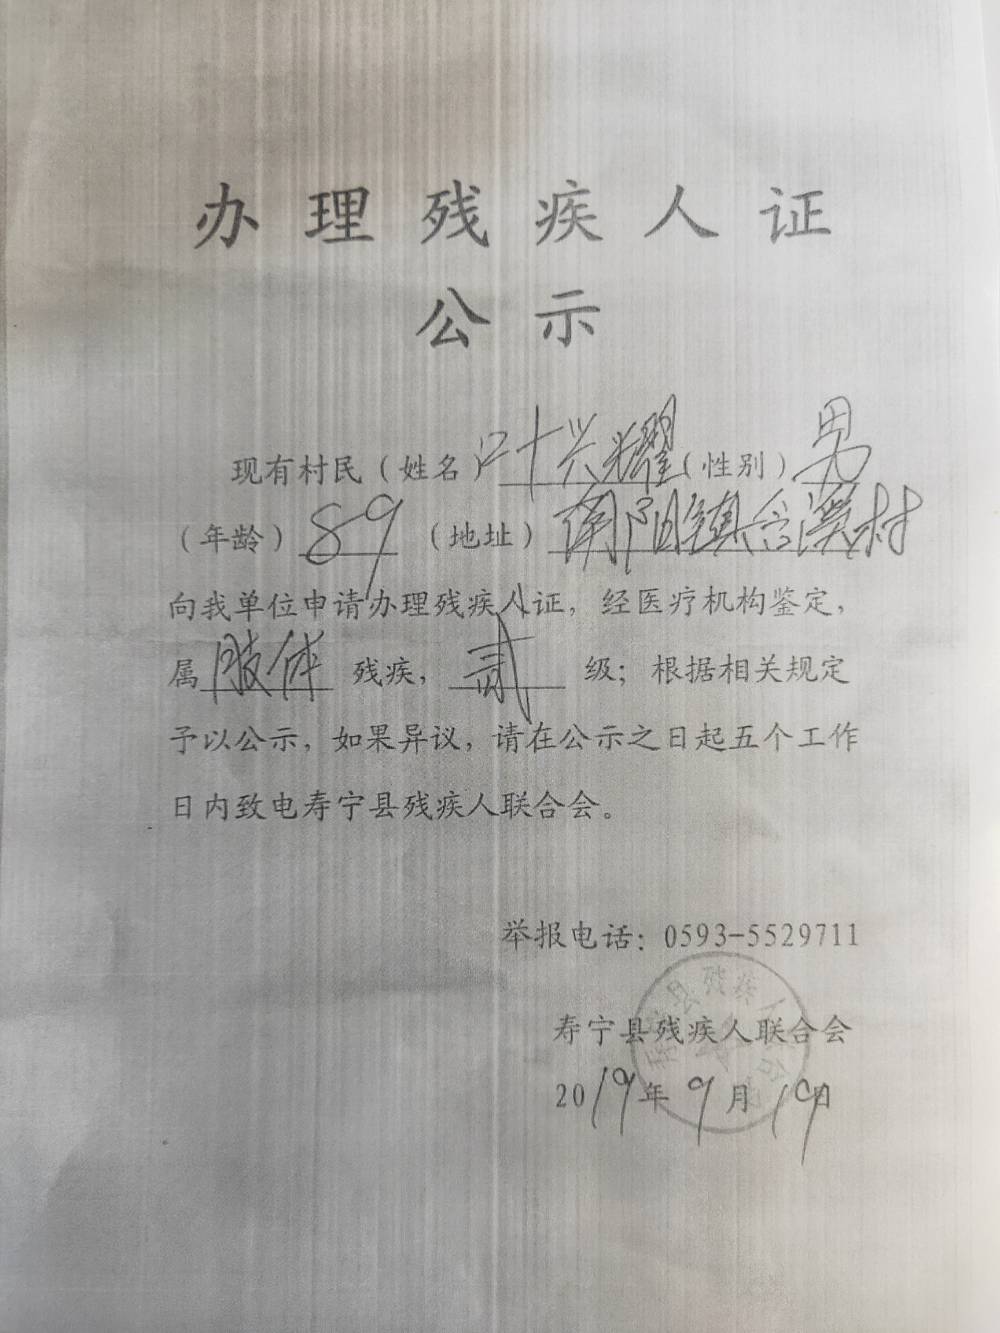 办理残疾人证
公示
现有村民（姓名）叶兴耀（性别）男
（年龄）89（地址）南阳镇含溪村
向我单位申请办理残疾人证，经医疗机构鉴定，
属肢体残疾，贰级；根据相关规定
予以公示，如果异议，请在公示之日起五个工作
日内致电寿宁县残疾人联合会。
举报电话：0593-5529711
寿宁县残疾人联合会
2019年9月19日